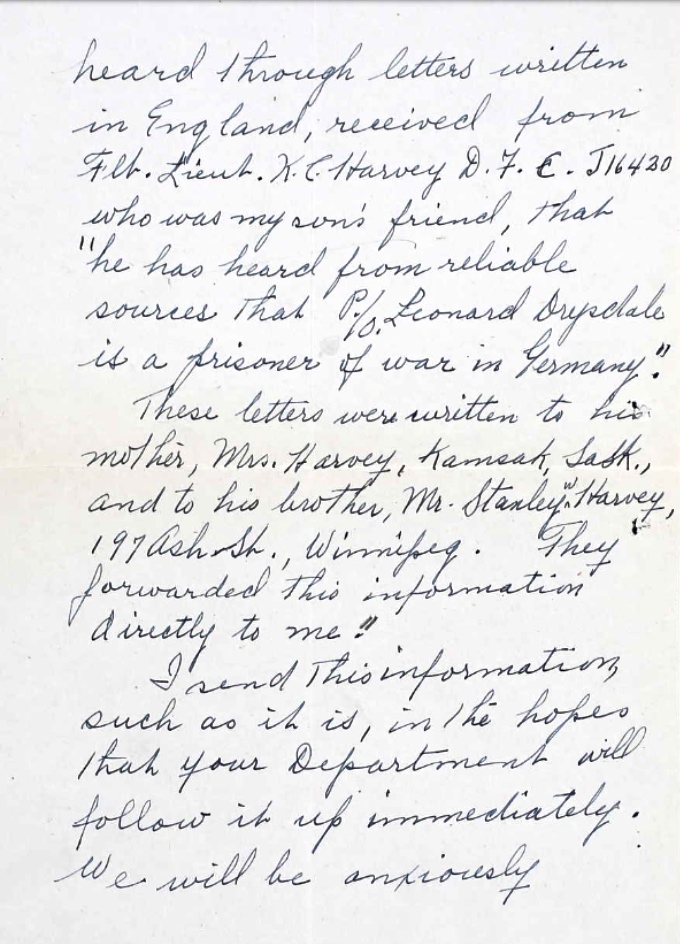 heard through letters written
in England, received from
Flt. Lieut. K.C. Harvey D.F.C. J16420
who was my son's friend, that
"he has heard from reliable
sources that P/O. Leonard Drysdale
is a prisoner of war in Germany."
These letters were written to his
mother, Mrs. Harvey, Kamsak, Sask.,
and to his brother, Mr. Stanley W. Harvey,
197 Ash St., Winnipeg. They
forwarded this information
directly to me."
I send this information,
such as it is, in the hopes
that your Department will
follow it up immediately.
We will be anxiously